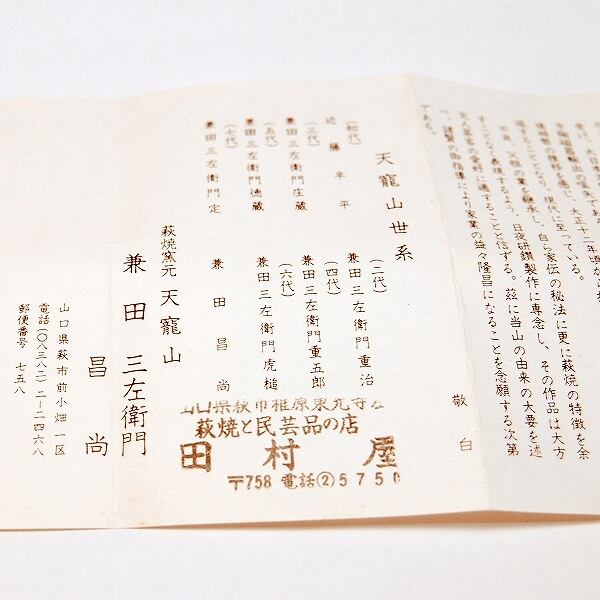 することなく表現するよう、日夜研鑽製作に専念し、その作品は大方
文人墨客の愛好に適することと信ずる。茲に当山の由来の大要を述
、諸賢の御指導により家業の益々隆昌になることを念願する次第
である。
敬白
天寵山世系
（初代）
近藤半平
（二代）
兼田三左衛門重治
（三代）
兼田三左衛門庄蔵
（四代）
兼田三左衛門重五郎
（五代）
兼田三左衛門徳蔵
（六代）
兼田三左衛門虎槌
（七代）
兼田三左衛門定
兼田昌尚
萩焼窯元 天寵山
兼田三左衛門
昌尚
山口県萩市前小畑一区
電話（〇八三八二）二―二四六八
郵便番号 七五八
山口県萩市椎原東光寺
萩焼と民芸品の店
田村屋
〒758 電話②5750